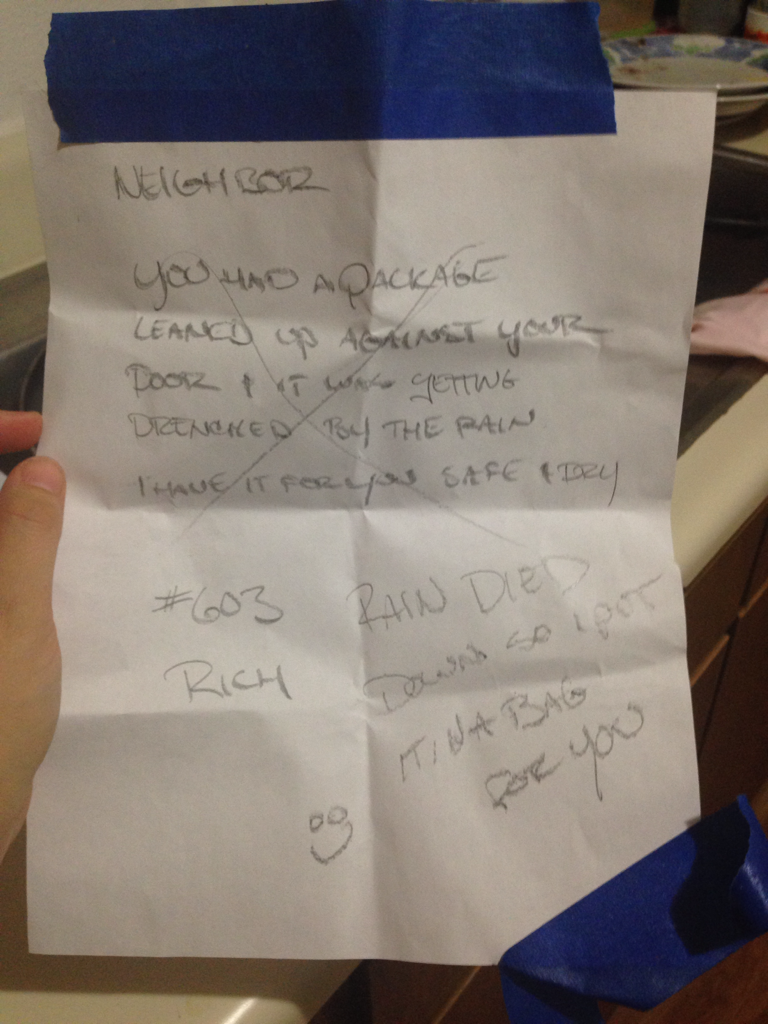 NEIGHBOR
YOU HAD A PACKAGE
LEANED UP AGAINST YOUR
DOOR & IT WAS GETTING
DRENCHED BY THE RAIN
I HAVE IT FOR YOU SAFE & DRY
#603
RICH
RAIN DIED
DOWN SO I PUT
IT IN A BAG
FOR YOU